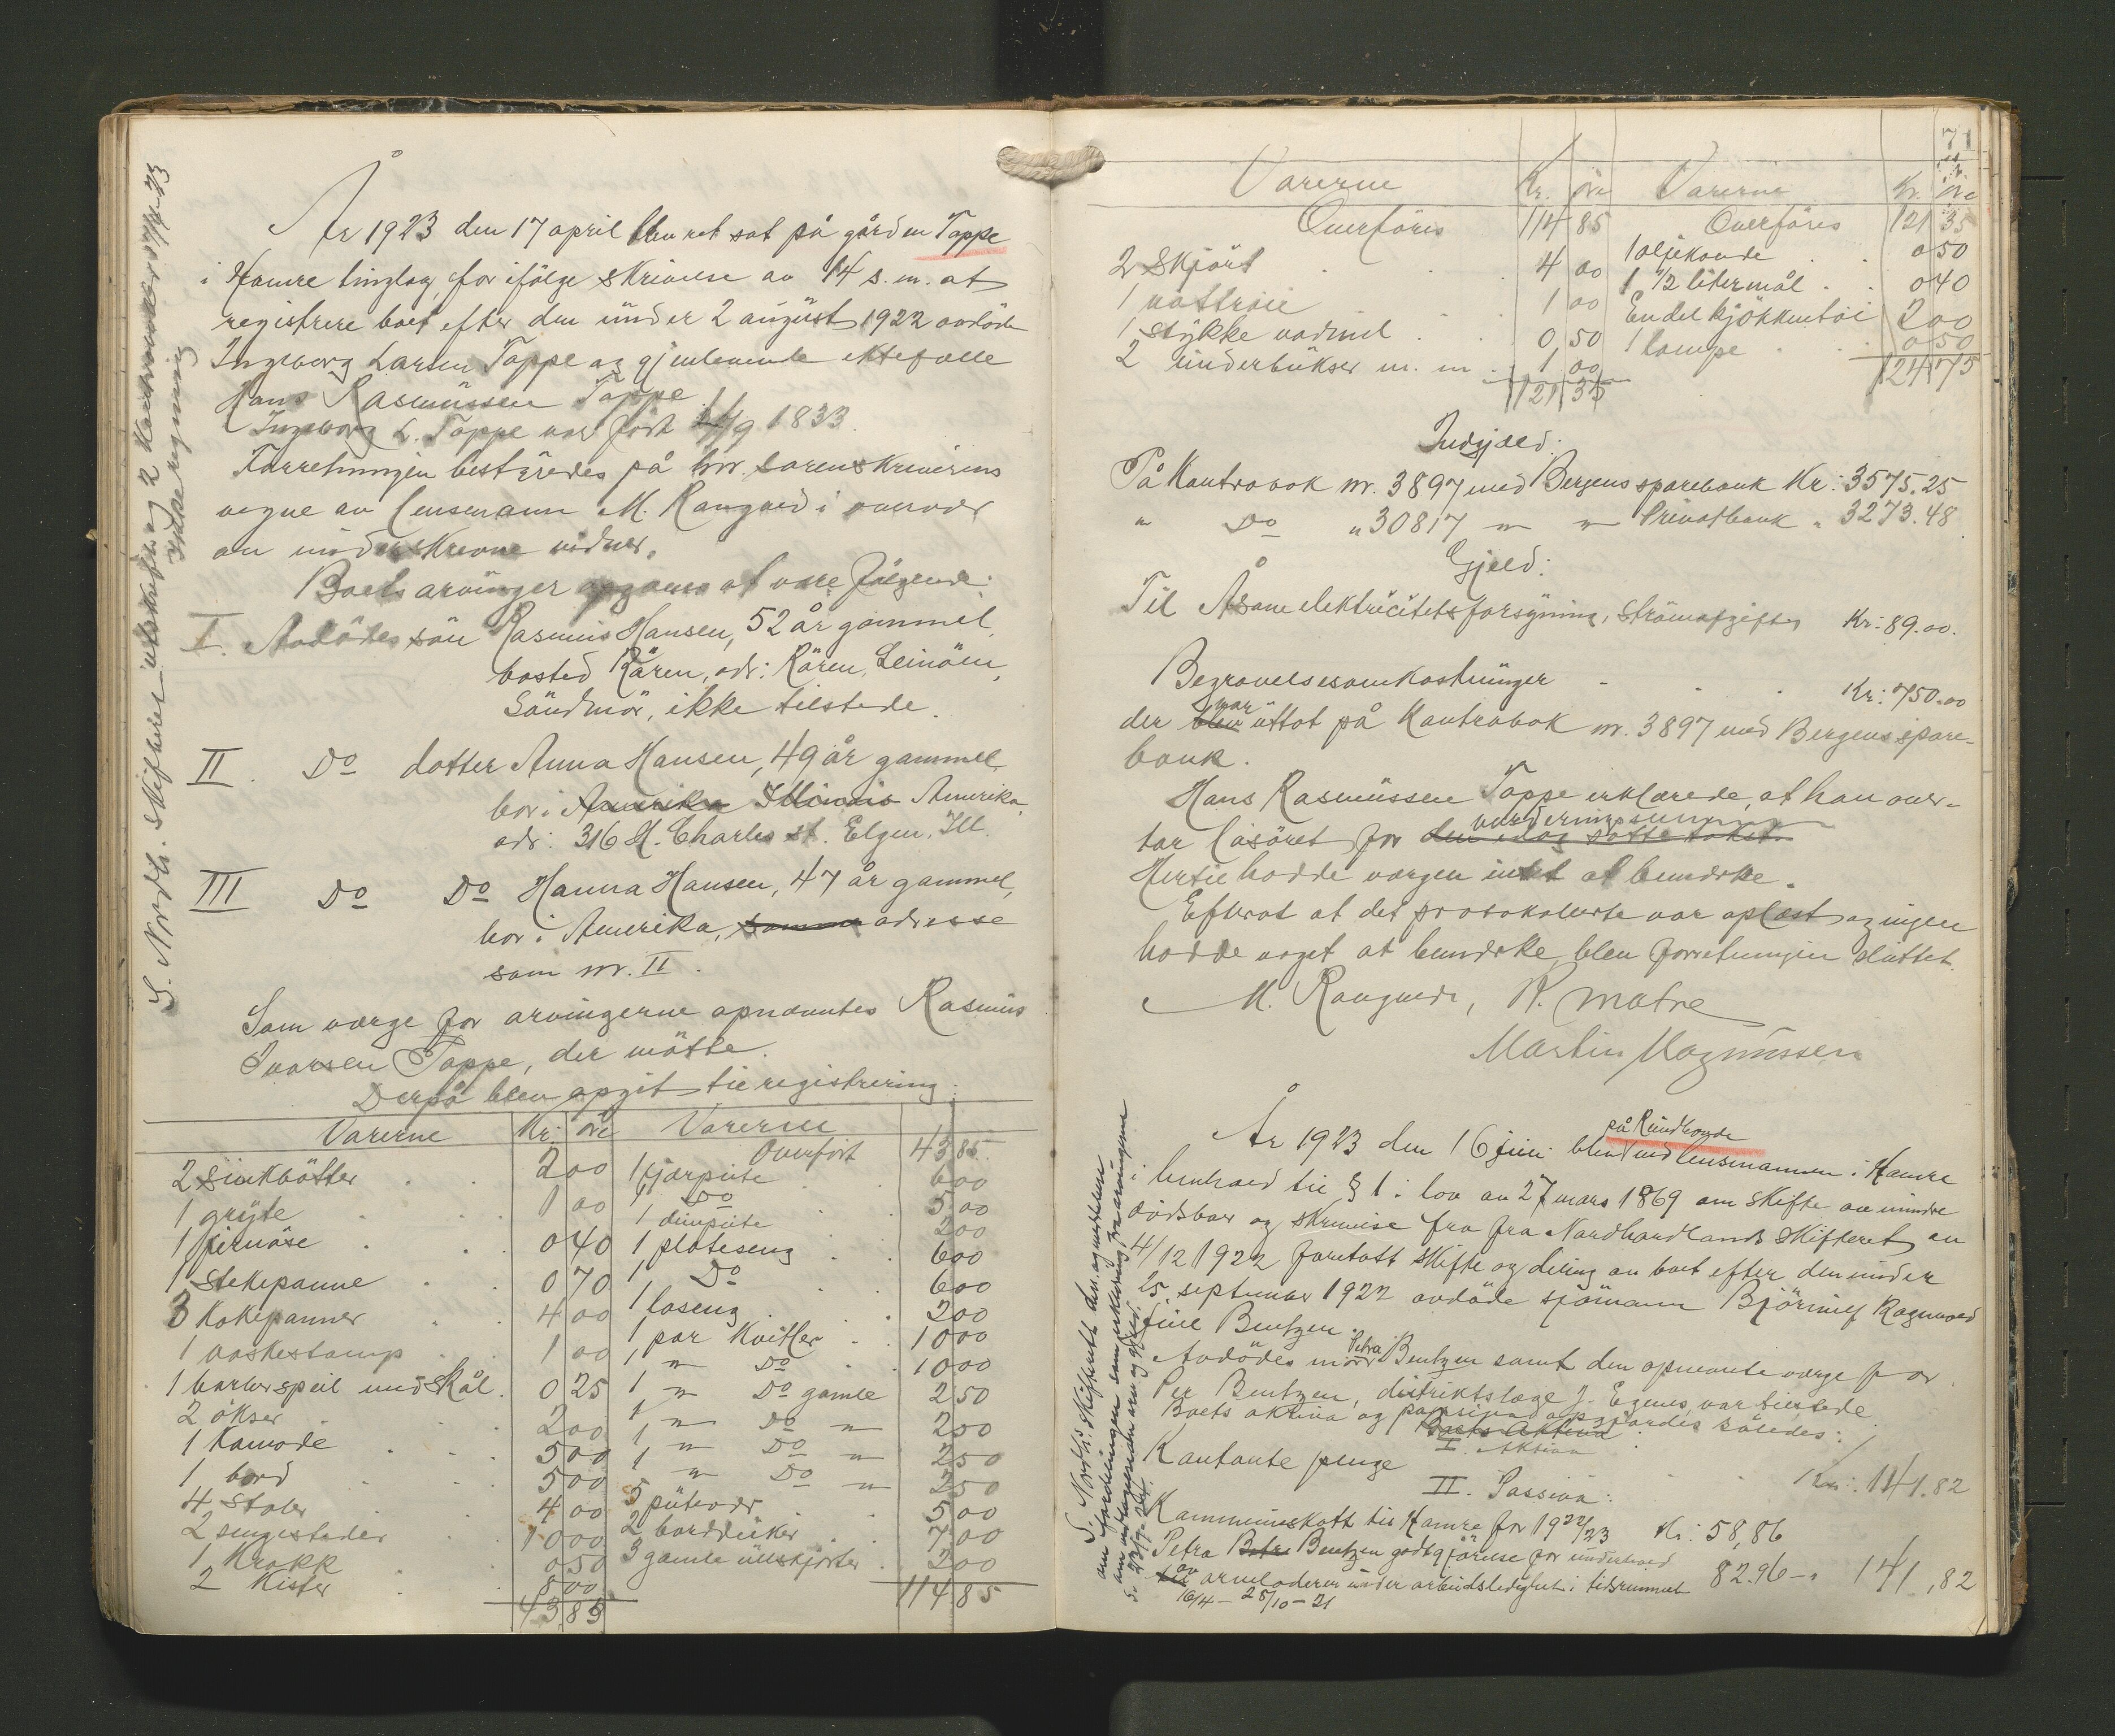 År 1923 den 17 april blev ret sat på gården Toppe
i Hamre tinglag, for ifölge skrivelse av 14 s.m. at
registrere boet efter den under 2 august 1922 avdöde
Ingeborg Larsen Toppe og gjenlevende ektefælle
Hans Rasmussen Toppe.
Ingeborg L. Toppe var födt /9 1833.
Forretningen bestyredes på hr. sorenskriverens
vegne av lensmann M. Rangved i overvær
av underskrevne vidner.
Boets arvinger opgaves at være fölgende:
I. Avdödes sön Rasmus Hansen, 52 år gammel,
bosted Rören, adr: Rören, Leinöen,
Söndmör, ikke tilstede.
II. Do datter Anna Hansen, 49 år gammel,
bor i Amerika Illinois Amerika,
adr: 316 H. Charles st. Elgen, Ill.
III Do Do Hanna Hansen, 47 år gammel,
bor i Amerika, samme adresse
som nr. II.
Som værge for arvingerne opnævntes Rasmus
Ivarsen Toppe, der mötte.
Derpå blev opgit til registrering:
Varerne Kr. öre Varerne
Overfört 43 85
2 sinkbötter 2 00 1 fjærpute 6 00
1 gryte 1 00 1 Do 5 00
1 dunpute 2 00
1 fiernöse 0 40 1 plateseng 6 00
1 stekepanne 0 70 1 Do 6 00
3 kokepanner 4 00 1 loseng 2 00
1 vaskestamp 1 00 1 par kvitler 10 00
1 barberspeil med skål 0 25 1 " Do 10 00
2 økser 2 00 1 " Do gamle 2 50
1 Komode 5 00 1 " Do " 2 50
1 bord 5 00 1 " Do " 2 50
4 stoler 4 00 1 " Do " 2 50
2 sengesteder 10 00 5 putevar 5 00
1 Krakk 0 50 2 bordduker 7 00
2 Kister 8 00 3 gamle ullskjorter 2 00
43,85 114 85
S. Nordh. skifteret utskrift og 2 17/4-23
71
Varerne Kr. öre Varerne Kr. öre
Overföres 114 85 Overföres 121 35
2 skjört 4 00 1 oljekande 0 50
1 nattroie 1 00 1 1/2 litermål 0 40
1 stykke vadmel 0,50 En del kjökkentöi 2 00
2 underbukser m. m 1 00 1 lampe 0 50
121 35 124 75
Indgjæld:
På Kontrabok nr. 3897 med Bergens sparebank Kr: 3575.25
" Do " 30817 " " Privatbank " 3273.48
Gjeld:
Til Åsane elektricitetsforsyning, strömafgifter Kr: 89.00.
Begravelsesomkostninger Kr: 750.00
der blev var uttat på Kontrabok nr. 3897 med Bergens spare-
bank.
Hans Rasmussen Toppe erklærede, at han over-
tar lösöret for den idag satte takst. vurderingssum
Hertil hadde værgen intet at bemerke.
Efterat at det protokollerte var oplæst og ingen
hadde noget at bemerke, blev forretningen sluttet.
M. Rangved, R. Matre
Martin Magnussen
År 1923 den 16 juni blev på Rundhovde ved lensmannen i Hamre
i henhold til § 1 i lov av 27 mars 1869 om skifte av mindre
dödsboer og skrivelse fra fra Nordhordlands skifteret av
4/12 1922 foretatt skifte og deling av boet efter den under
25 september 1922 avdöde sjömann Björnulf Ragnvald
Juul Bentzen.
Avdödes mor Petra Bentzen samt den opnevnte værge for
Per Bentzen, distriktslæge J. Egenes var tilstede.
Boets aktiva og passiva opgjordes således:
Boets Aktiva
I. Aktiva
Kontante penge Kr: 141.82
II. Passiva:
Kommuneskatt til Hamre for 1922/23 Kr: 58,86
Petra Betre Bentzen godtgjörelse for underhold
til av arveladeren under arbeidsledighet i tidsrummet 82.96 - " 141,82
16/4 - 28/10 - 21
S. Nordh. skifteret